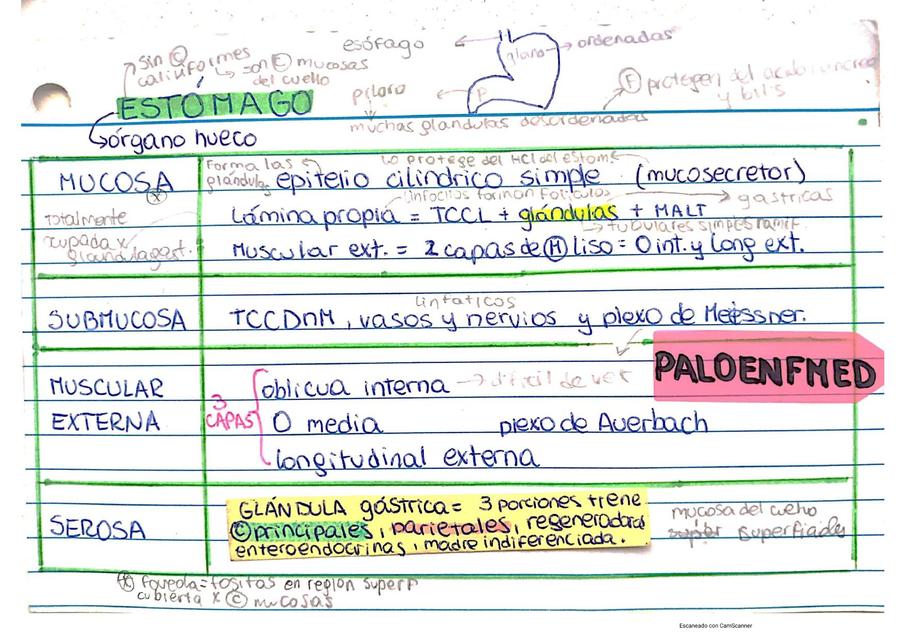 esófago
ordenadas
sin Ⓒ
caliciformes
son Ⓒ mucosas
del cuello
píloro
P
Ⓕ protegen del acido
y bilis
muchas glándulas desordenadas
ESTÓMAGO
órgano hueco
MUCOSA
totalmente
ocupada x
glandulagast.
forma las
glándulas
lo protege del HCl del estom
epitelio cilíndrico simple (mucosecretor)
linfocitos forman folículos
gastricas
Lámina propia = TCCL + glándulas + MALT
tubulares simples ramif.
Muscular ext. = 2 capas de Ⓜ liso = O int. y long ext.
SUBMUCOSA
linfaticos
TCCDnM, vasos y nervios y plexo de Meissner.
MUSCULAR
EXTERNA
3
CAPAS
oblicua interna
dificil de ver
PALOENFMED
O media
plexo de Auerbach
longitudinal externa
SEROSA
GLÁNDULA gástrica = 3 porciones tiene
Ⓒ principales, parietales, regeneradoras
enteroendocrinas, madre indiferenciada.
mucosa del cuello
superficiales
ⓧ Foveola = fositas en región superf
cubierta x Ⓒ mucosas
Escaneado con CamScanner